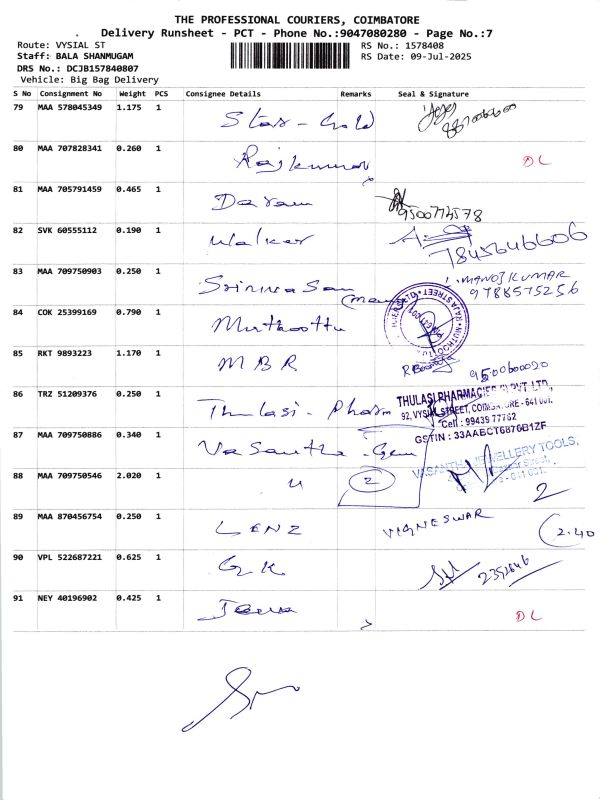 THE PROFESSIONAL COURIERS, COIMBATORE
Delivery Runsheet - PCT - Phone No.:9047080280 - Page No.:7
Route: VYSIAL ST
RS No.: 1578408
Staff: BALA SHANMUGAM
RS Date: 09-Jul-2025
DRS No.: DCJB157840807
Vehicle: Big Bag Delivery
S No Consignment No Weight PCS Consignee Details Remarks Seal & Signature
79 MAA 578045349 1.175 1 Star - Gold
80 MAA 707828341 0.260 1 Rajkumar DL
81 MAA 705791459 0.465 1 9500774578
82 SVK 60555112 0.190 1 Walker 7845646606
83 MAA 709750903 0.250 1 Srinivasan (manoj) MANOJ KUMAR
9788575256
84 COK 25399169 0.790 1 Muthoottu
RAJA STREET
85 RKT 9893223 1.170 1 MBR 9500600020
86 TRZ 51209376 0.250 1 Thulasi - Pharm THULASI PHARMACIES (I) PVT LTD,
92, VYSIAL STREET, COIMBATORE - 641 001.
Cell : 99439 77762
GSTIN : 33AABCT6876B1ZF
87 MAA 709750886 0.340 1 Vasantha Gem VASANTHA JEWELLERY TOOLS,
88 MAA 709750546 2.020 1 u 2 2
89 MAA 870456754 0.250 1 LENZ VIGNESWAR 2.40
90 VPL 522687221 0.625 1 G.K. 2392646
91 NEY 40196902 0.425 1 DL